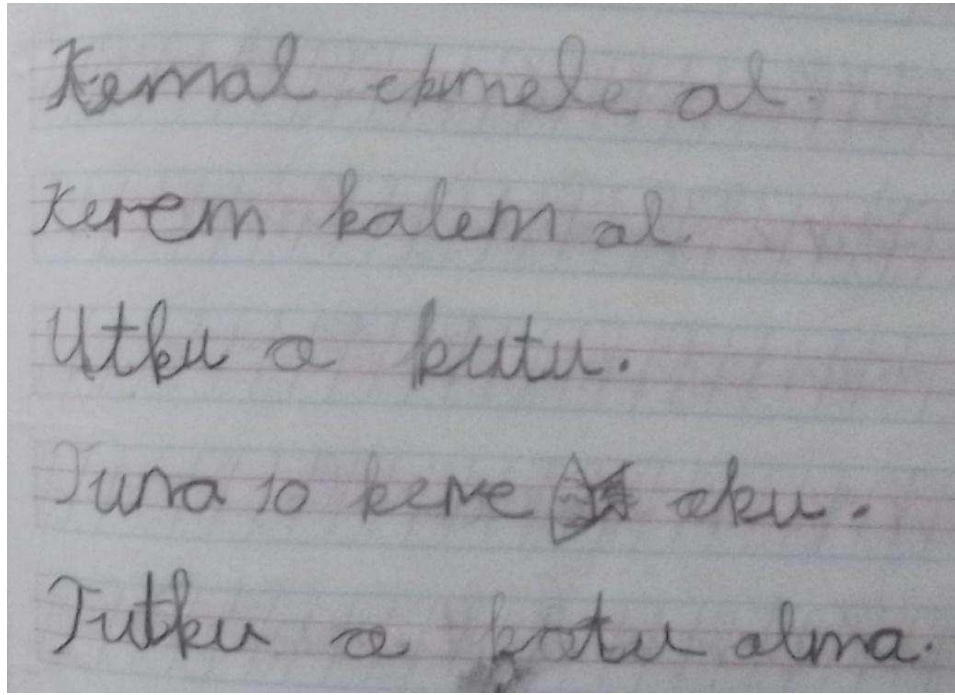 Kemal ekmele al.
Kerem kalem al.
Utku o kutu.
Tuna 10 kere oku.
Tutku o kotu alma.